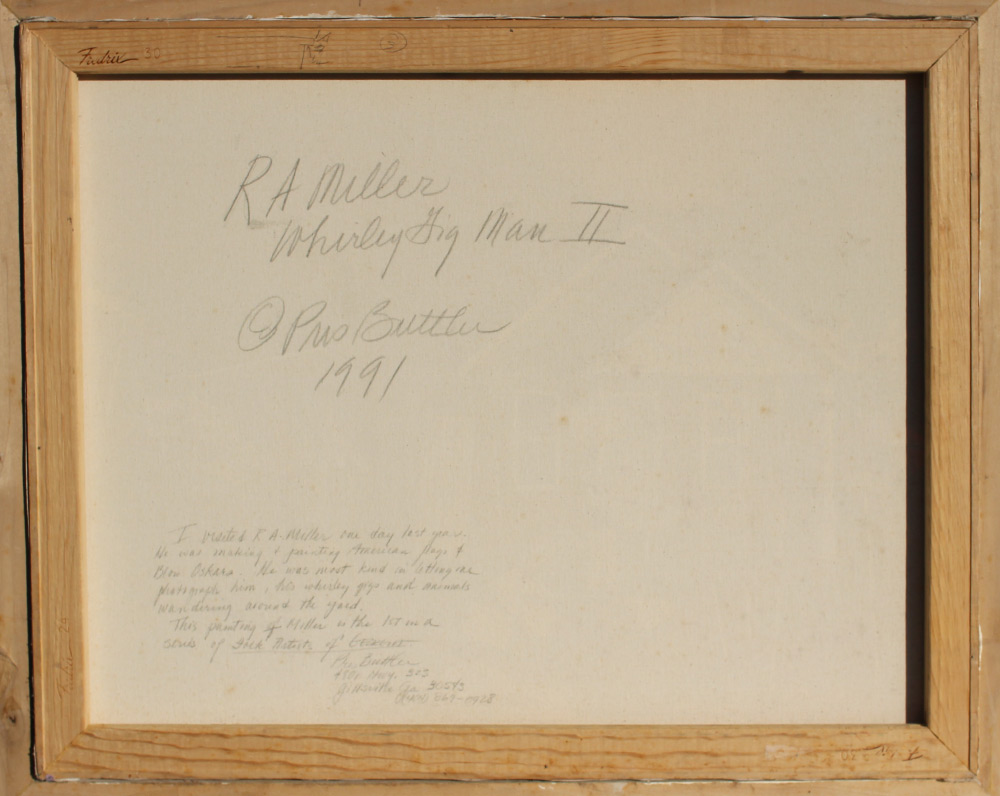 Fredrix 30
R A Miller
Whirley Gig Man II
© Pris Buttler
1991
I visited R. A. Miller one day last year.
He was making & painting American flags &
Blow Oskars. He was most kind in letting us
photograph him, his whirley gigs and animals
wandering around the yard.
This painting of Miller is the 1st in a
series of Folk Artists of Georgia.
Pris Buttler
Hwy. 323
Gillsville Ga. 30543
Fredrix 24